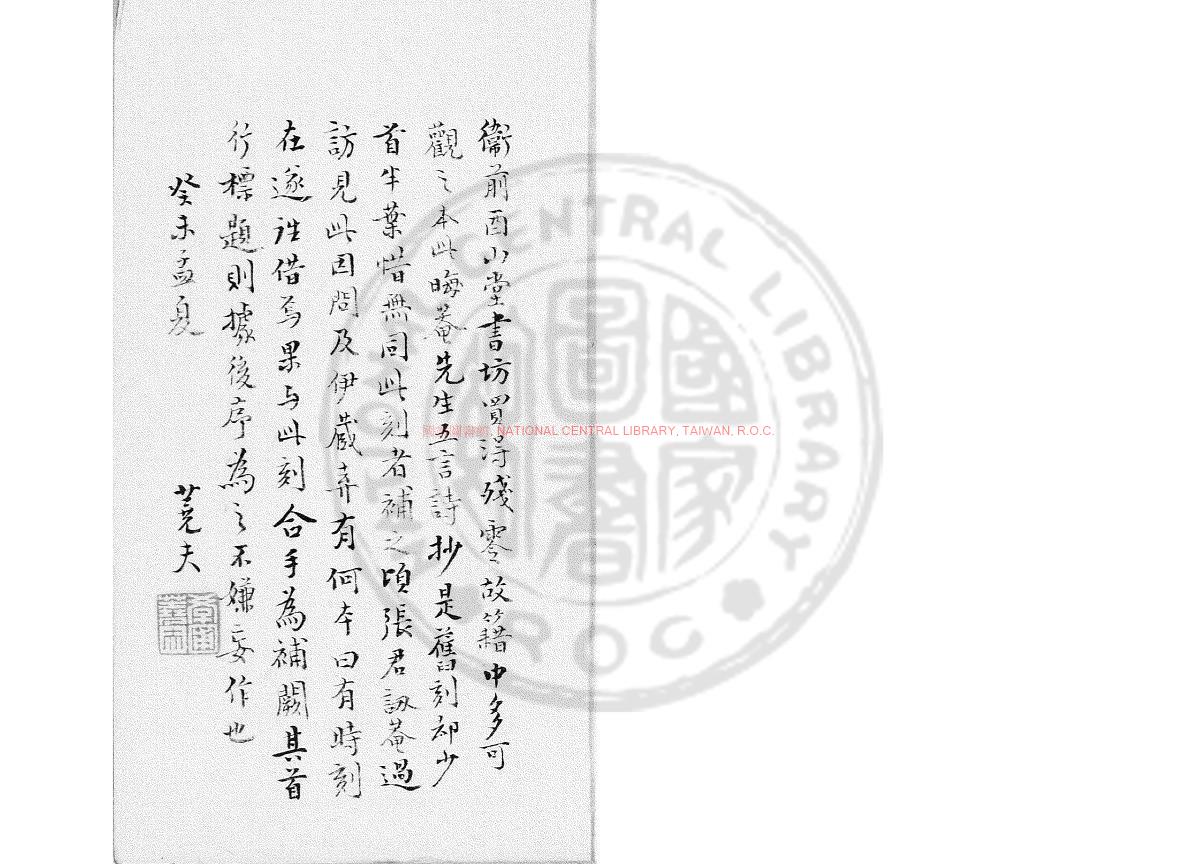 衞前酉山堂書坊買得殘零故籍中多可
觀之本此晦菴先生五言詩抄是舊刻却少
首半葉惜無同此刻者補之頃張君訒菴過
訪見此因問及伊藏弆有何本曰有時刻
在遂往借焉果与此刻合手為補闕其首
行標題則據後序為之不嫌妄作也
癸未孟夏 蕘夫
國家圖書館, NATIONAL CENTRAL LIBRARY, TAIWAN, R.O.C.
NATIONAL CENTRAL LIBRARY
R.O.C